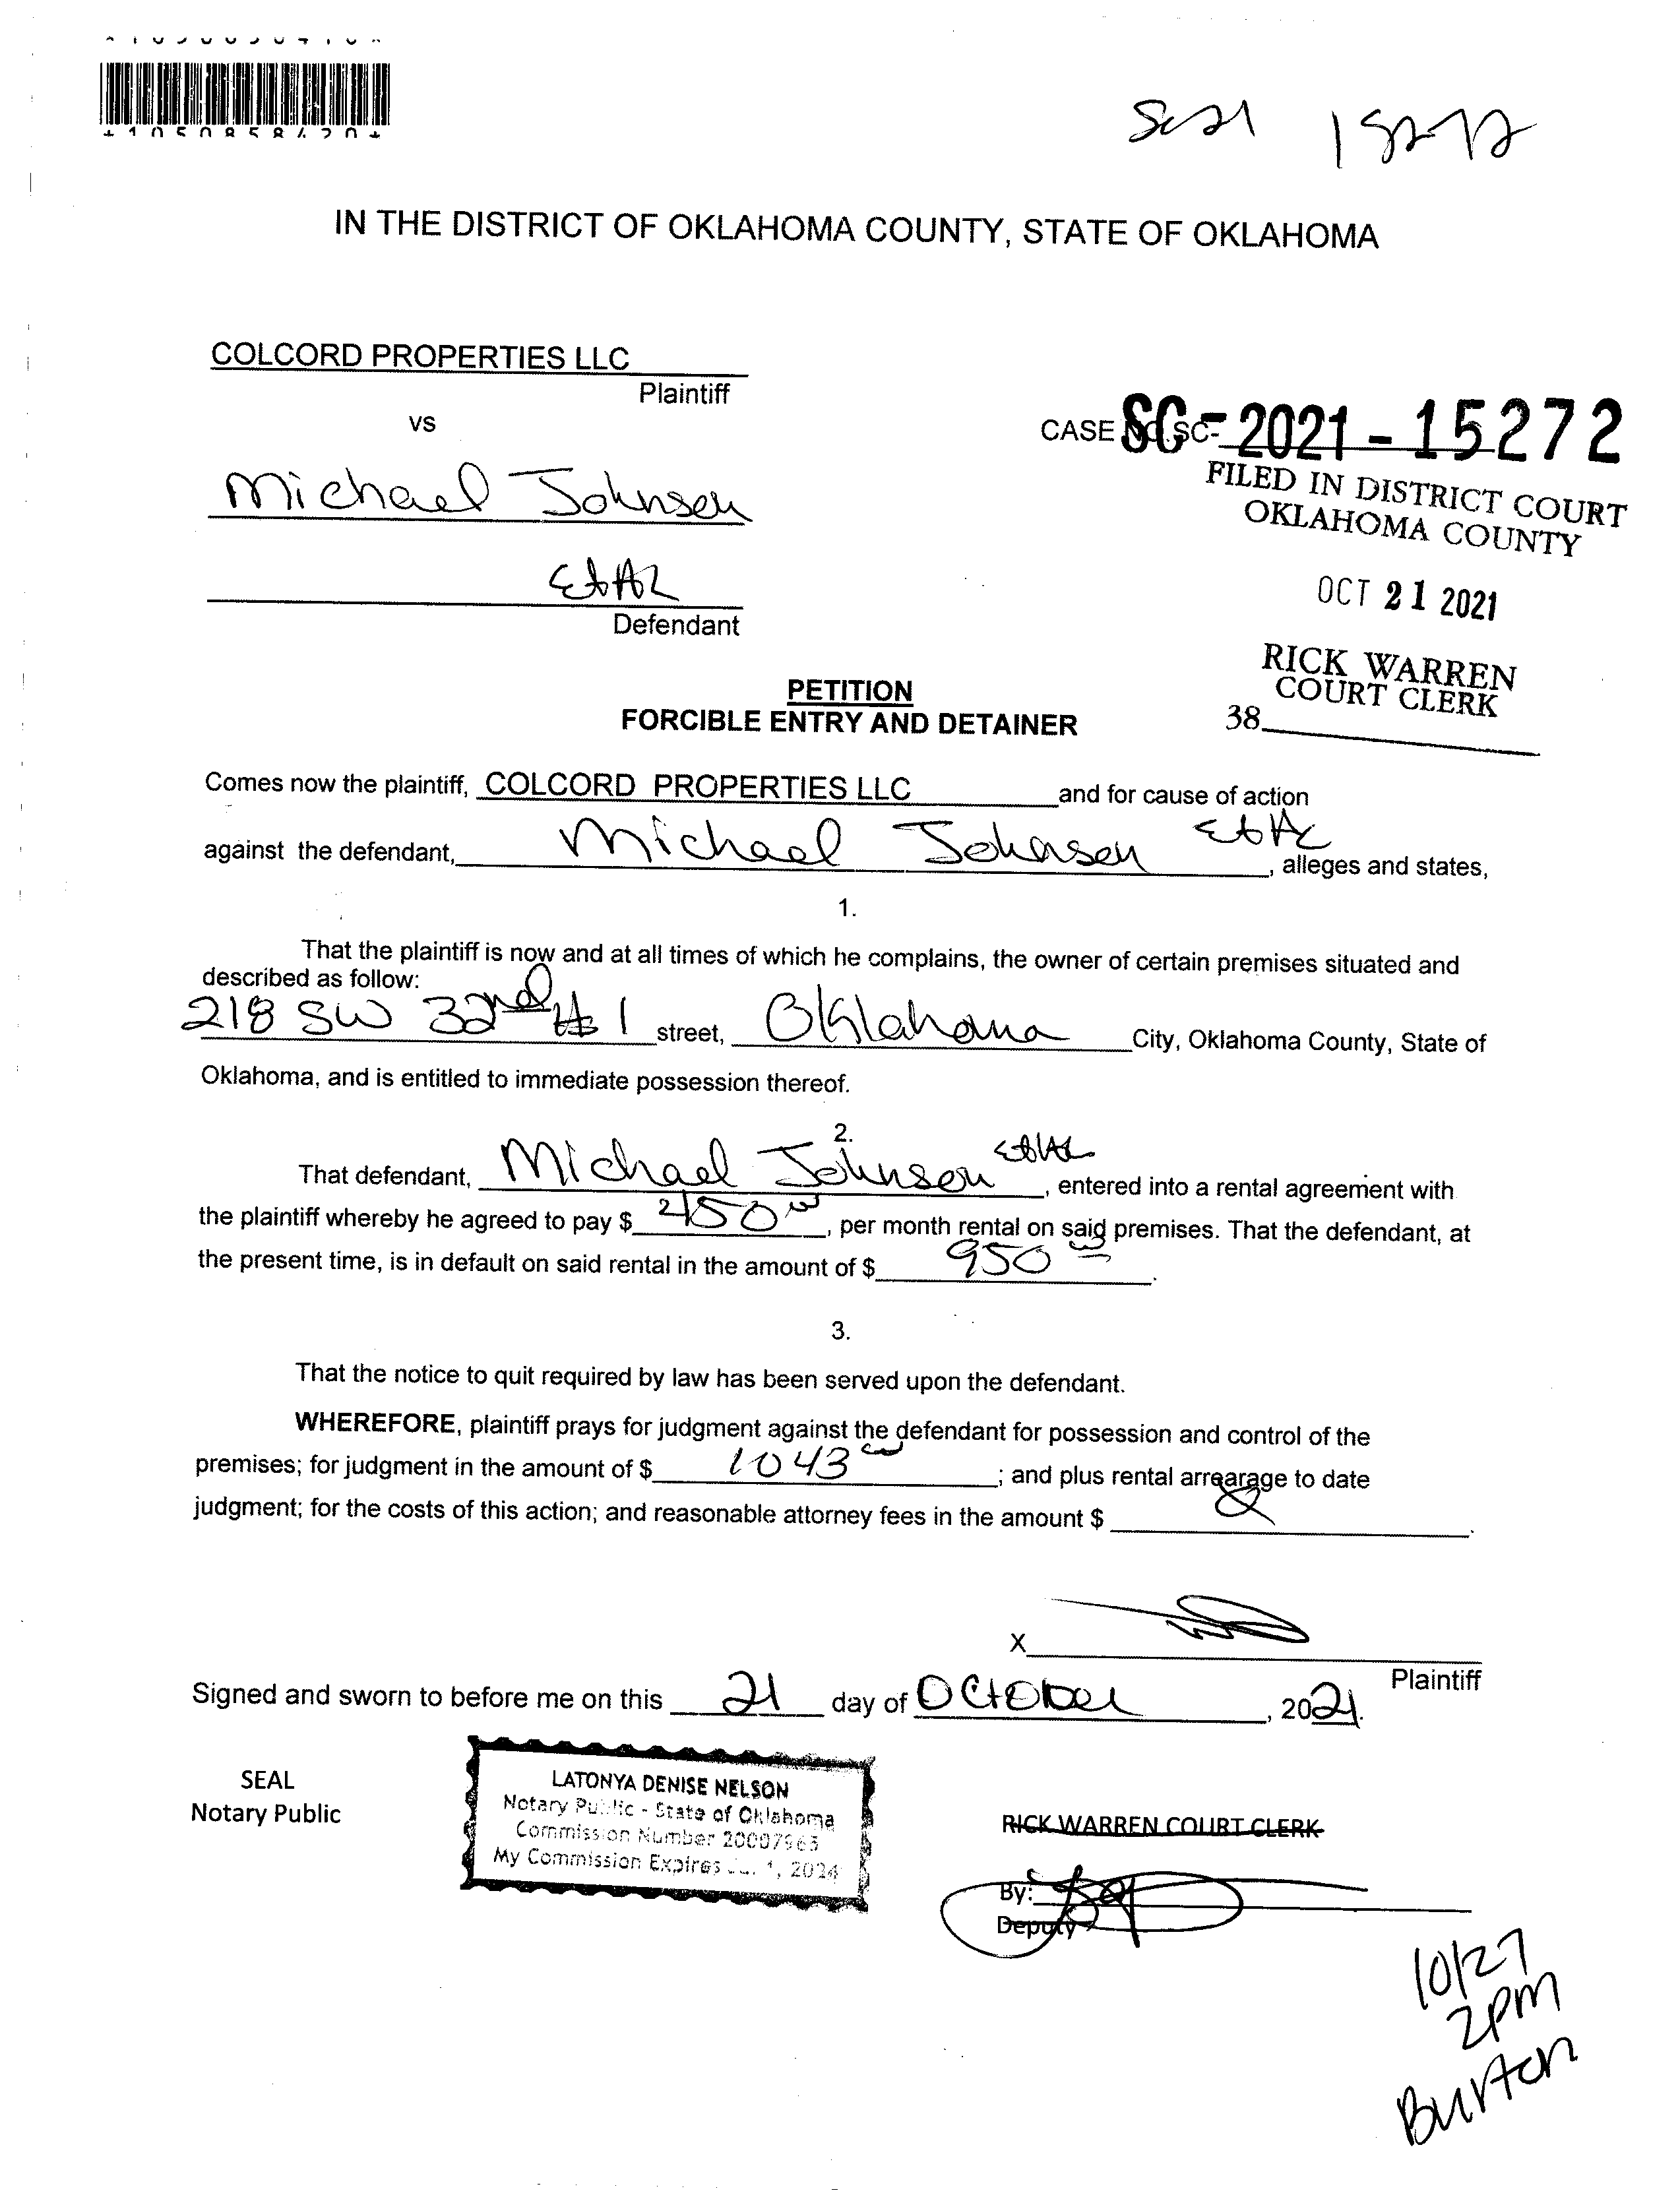 SC21 15272
IN THE DISTRICT OF OKLAHOMA COUNTY, STATE OF OKLAHOMA
COLCORD PROPERTIES LLC
Plaintiff
vs
CASE NO. SC-
SC-2021-15272
Michael Johnson
FILED IN DISTRICT COURT
OKLAHOMA COUNTY
Et Al
Defendant
OCT 21 2021
RICK WARREN
COURT CLERK
38
PETITION
FORCIBLE ENTRY AND DETAINER
Comes now the plaintiff, COLCORD PROPERTIES LLC and for cause of action
against the defendant, Michael Johnson Et Al, alleges and states,
1.
That the plaintiff is now and at all times of which he complains, the owner of certain premises situated and
described as follow:
218 SW 32nd #1 street, Oklahoma City, Oklahoma County, State of
Oklahoma, and is entitled to immediate possession thereof.
2.
That defendant, Michael Johnson Et Al, entered into a rental agreement with
the plaintiff whereby he agreed to pay $ 450.00, per month rental on said premises. That the defendant, at
the present time, is in default on said rental in the amount of $ 950.00.
3.
That the notice to quit required by law has been served upon the defendant.
WHEREFORE, plaintiff prays for judgment against the defendant for possession and control of the
premises; for judgment in the amount of $ 1043.00; and plus rental arrearage to date
judgment; for the costs of this action; and reasonable attorney fees in the amount $
X
Plaintiff
Signed and sworn to before me on this 21 day of October, 2021.
SEAL
Notary Public
LATONYA DENISE NELSON
Notary Public - State of Oklahoma
Commission Number
My Commission Expires 1, 2024
RICK WARREN COURT CLERK
By:
Deputy
10/27
2pm
Burton